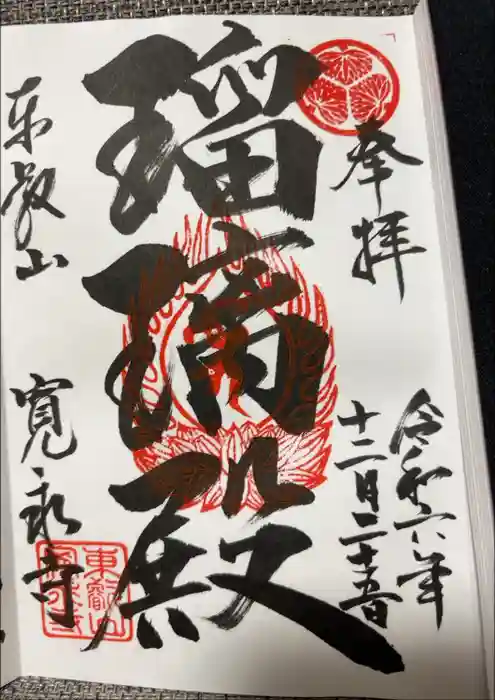 奉拝
令和六年
十二月二十五日
瑠璃殿
東叡山
寛永寺